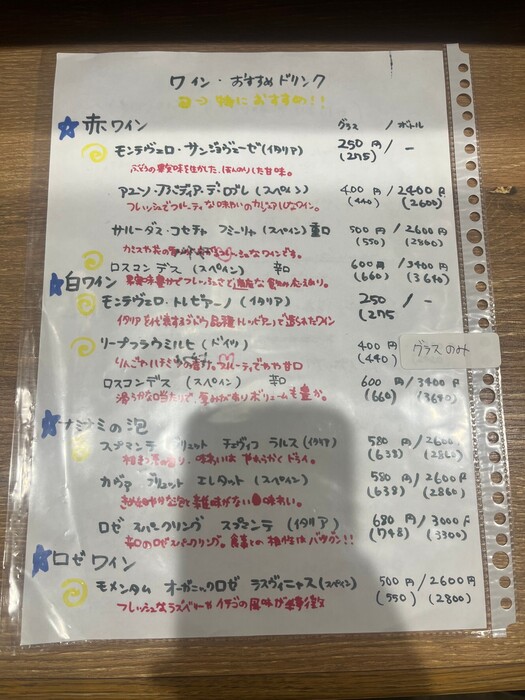 ワイン・おすすめドリンク
特におすすめ!!
赤ワイン グラス / ボトル
モンテヴェロ・サンジョヴェーゼ(イタリア) 250円 / -
(275)
ぶどうの果実味を生かした、ほんのりした甘味。
アユソ・アバディア・デ・ロブレ(スペイン) 400円 / 2400円
(440) (2600)
フレッシュでフルーティな味わいのカジュアルなワイン。
サルーダス・コセチャ ファミーリャ(スペイン) 重口 500円 / 2600円
(550) (2860)
カシスや炎の
ロスコンデス(スペイン) 辛口 600円 / 3400円
(660) (3640)
果実味豊かでフレッシュさと
白ワイン
モンテヴェロ・トレビアーノ(イタリア) 250 / -
(275
イタリアを代表するブドウ品種トレッビアーノで造られたワイン
リープフラウミルヒ(ドイツ) 400円 グラスのみ
(440)
りんごやハチミツの香り。フルーティでやや甘口
ロスコンデス(スペイン) 辛口 600円 / 3400円
(660) (3640)
滑らかな口当たりで、厚みがありボリュームも豊か。
ナミナミの泡
スプマンテ ブリュット チェヴィコ ラルス(イタリア) 580円 / 2600
(638) (2860)
柑きつ系の香り、味わいは やわらかく ドライ。
カヴァ ブリュット エレタット(スペイン) 580円 / 2600円
(638) (2860)
きめ細やかな泡と雑味がない味わい。
ロゼ スパークリング スプマンテ (イタリア) 680円 / 3000円
(748) (3300)
辛口のロゼスパークリング。食事との相性はバツグン!!
ロゼワイン
モメンタム オーガニックロゼ ラスヴィニャス(スペイン) 500円 / 2600円
(550) (2800)
フレッシュなラズベリーやイチゴの風味が特徴